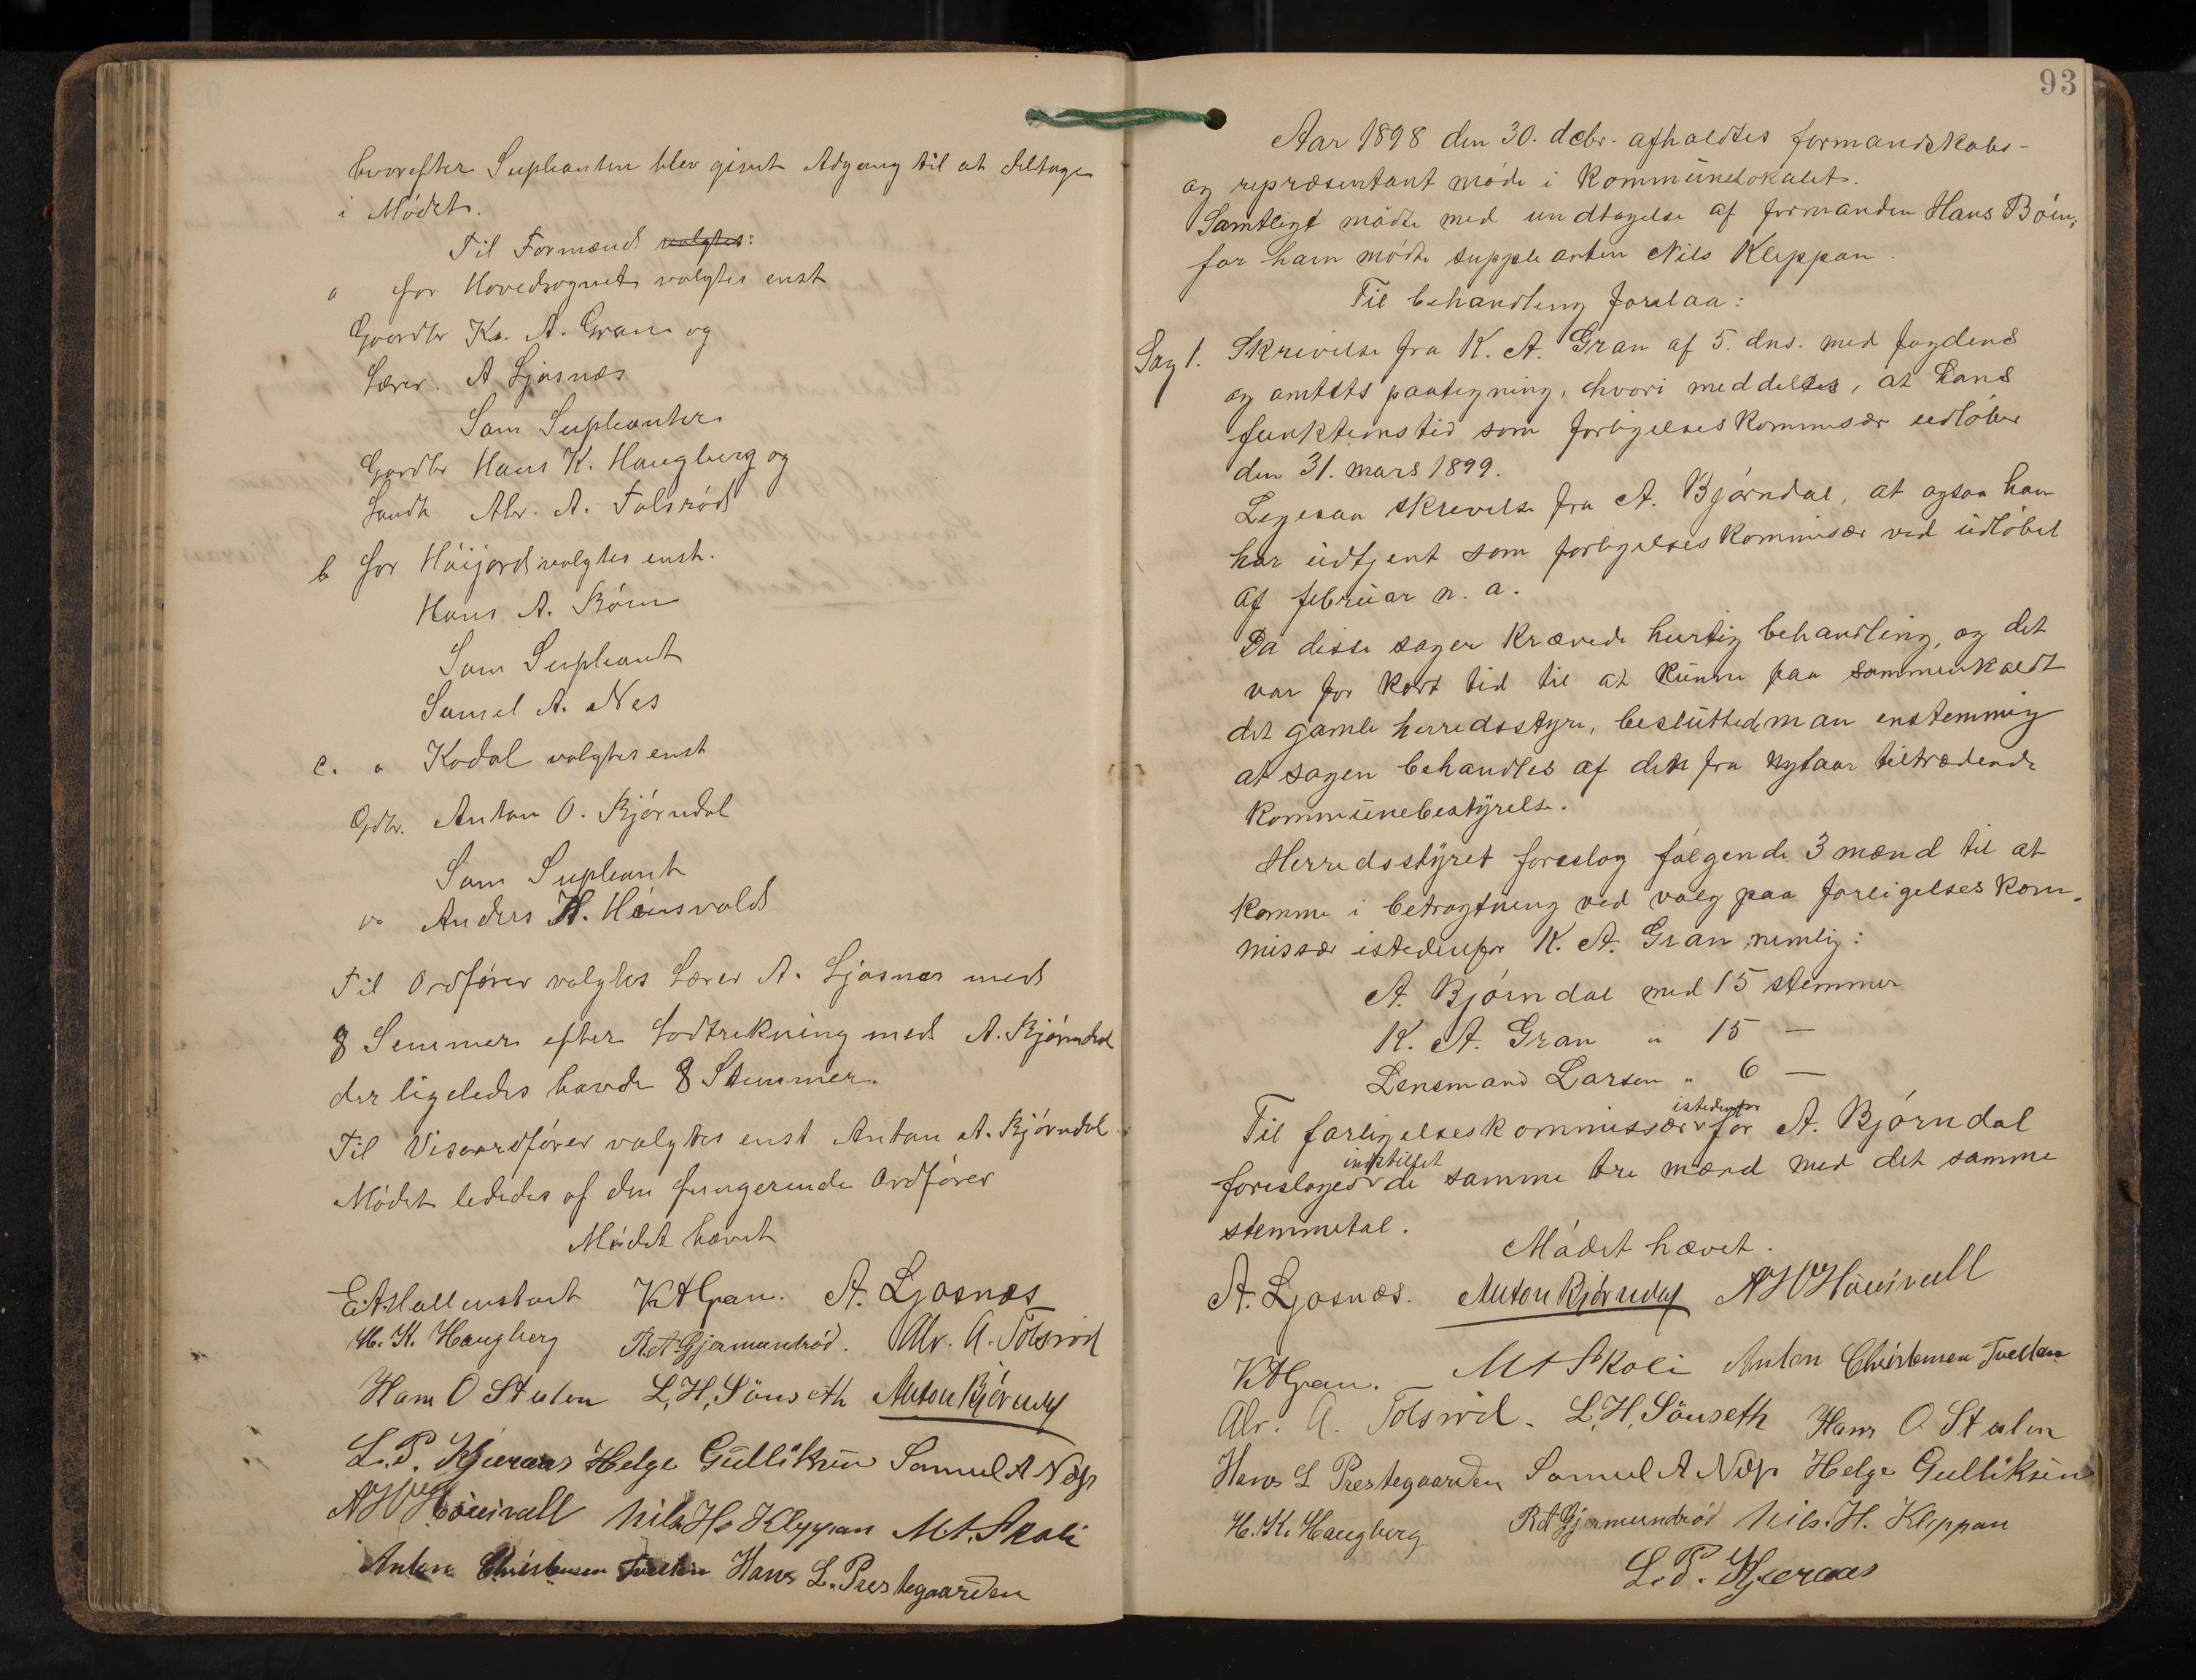 hvorefter Supleanten blev givet Adgang til at deltage
i Mødet.
Til Formænd valgtes:
a for Hovedsognet valgtes enst
Gaardbr K. A. Gran og
Lærer. A Ljosnæs
Som Supleanter
Gardbr Hans K. Haugberg og
Landh Alv. A. Tolsrød
b for Høijord valgtes enst.
Hans A. Bøen
Som Supleant
Samel A. Nes
c. " Kodal valgtes enst
Gdbr. Anton O. Bjørndal
Som Supleant
" Anders H. Housvald
Til Ordfører valgtes Lærer A. Ljosnæs med
8 Semmer efter Lodtrekning med A. Bjørndal
der ligeledes havde 8 Stemmer.
Til Viseordfører valgtes enst Anton A. Bjørndal
Mødet lededes af den fungerende Ordfører
Mødet hævet
E. A. Hallenstvet KAGran. A. Ljosnæs
H. K. Haugberg R A Gjermundrød. Alv. A. Tolsrød
Hans O Stulen L. H. Sønseth Anton Bjørndal
L. P. Hjeraas Helge Gulliksen Samuel A Næs
A H Housvall Nils H. Kleppan M A. Skoli
Anton Christensen Tveten Hans L. Prestegaarden
93
Aar 1898 den 30. debr. afholdtes formandskabs-
og repræsentant møde i kommunelokalet.
Samtlige mødte med undtagelse af formanden Hans Bøen,
for ham mødte suppleanten Nils Kleppan.
Til behandling forelaa:
Sag 1. Skrivelse fra K. A. Gran af 5. dns. med fogdens
og amtets paategning, hvori meddeltes, at hans
funktionstid som forligelseskommisær udløber
den 31. mars 1899.
Legesaa skrivelse fra A. Bjørndal, at ogsaa han
har udtjent som forligelseskommisær ved udløbet
af februar n. a.
Da disse sager krævede hurtig behandling, og det
var for kort tid til at kunne faa sammenkaldt
det gamle herredsstyre, besluttede man enstemmig
at sagen behandles af den fra nytaar tiltrædende
kommunebestyrelse.
Herredsstyret foreslog følgende 3 mænd til at
komme i betragtning ved valg paa forligelseskom-
missær istedenfor K. A. Gran, nemlig:
A. Bjørndal med 15 stemmer
K. A. Gran " 15 —
Lensmand Larsen " 6 —
istedenfor
Til forligelseskommissær for A. Bjørndal
indstillet
foresloges de samme tre mænd med det samme
stemmetal.
Mødet hævet.
A. Ljosnæs. Anton Bjørndal A H Housvall
KAGran. M A Skoli Anton Christensen Tveten
Alv. A. Tolsrød. L. H. Sønseth Hans O Stulen
Hans L Prestegaarden Samuel A Næs Helge Gulliksen
H. K. Haugberg R A Gjermundrød Nils. H. Kleppan
L. P. Hjeraas